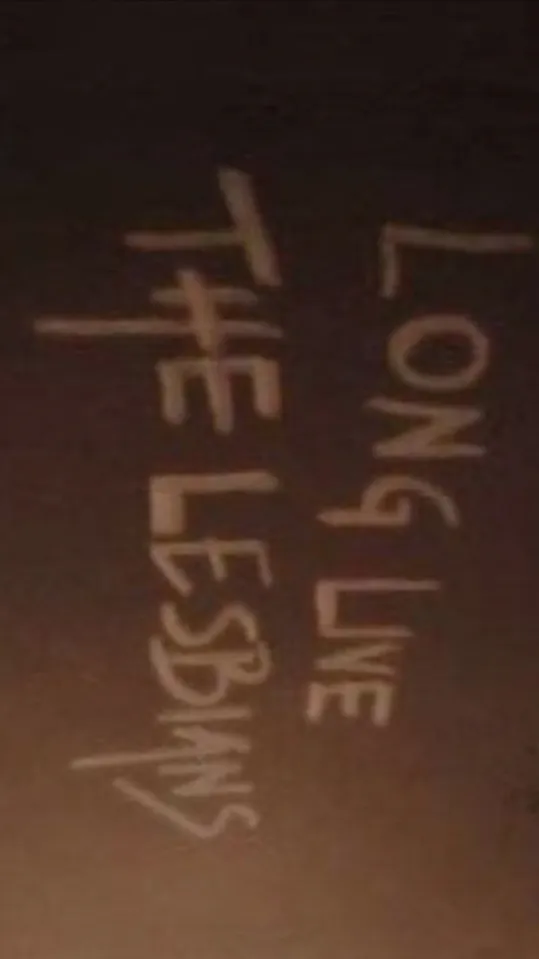 LONG LIVE
THE LESBIANS